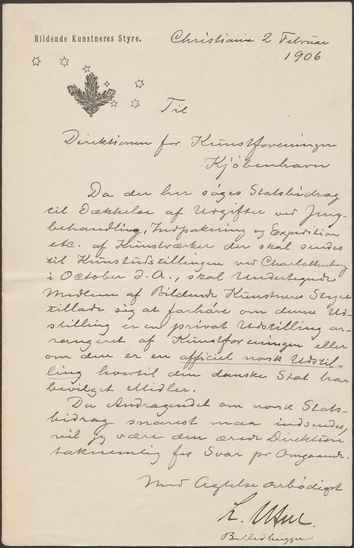 Bildende Kunstneres Styre.
Christiania 2 Februar
1906
Til
Direktionen for Kunstforeningen
Kjöbenhavn
Da der her söges Statsbidrag
til Dækkelse af Udgifter ved Jury-
behandling, Indpakning og Expedition
etc. af Kunstværker der skal sendes
til Kunstudstillingen ved Charlottenborg
i October d.A., skal Undertegnede
Medlem af Bildende Kunstneres Styre
tillade sig at forhöre om denne Ud-
stilling er en privat Udstilling ar-
rangeret af Kunstforeningen eller
om den er en officiel norsk Udstil-
ling hvortil den danske Stat har
bevilget Midler.
Da Andragendet om norsk Stats-
bidrag snarest maa indsendes,
vil jeg være den ærede Direktion
taknemlig for Svar pr Omgaaende.
Med Agtelse ærbödigst
L. Utne
Billedhugger